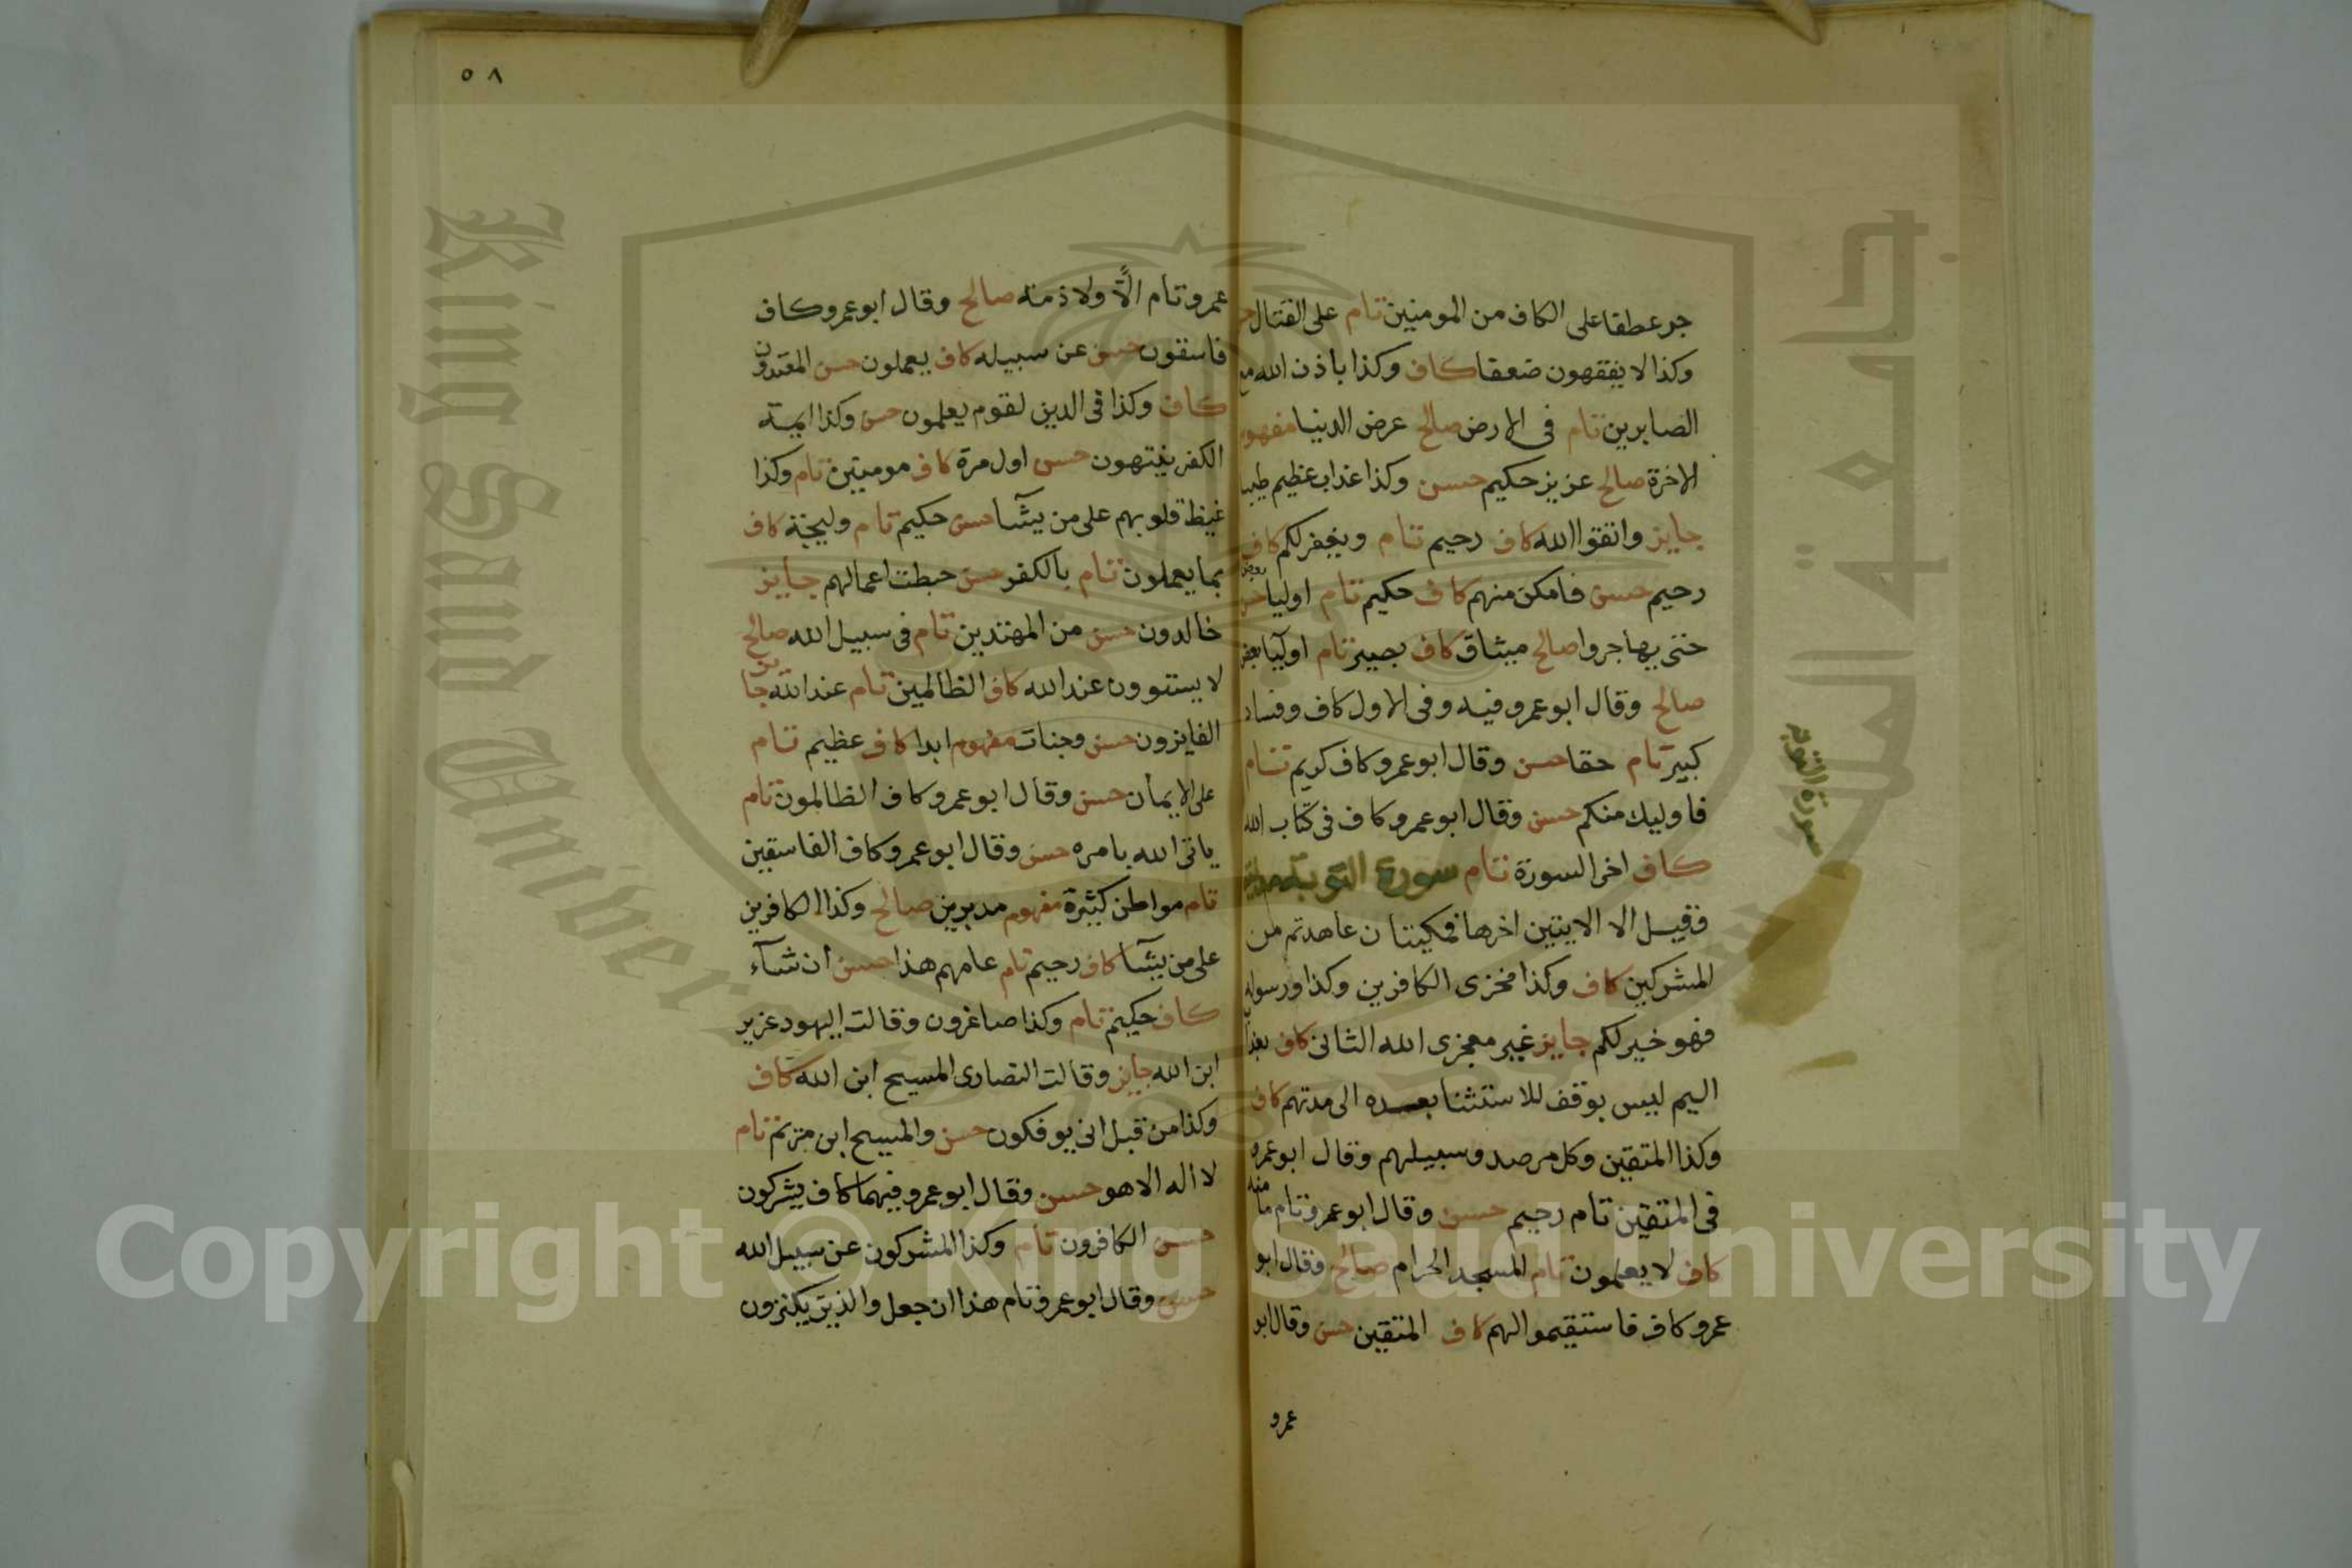 جر عطفا على الكاف من المومنين تام على القتال
وكذا لا يفقهون ضعفا كاف وكذا باذن الله مع
الصابرين تام فى الارض صالح عرض الدنيا مفهوم
الاخرة صالح عزيز حكيم حسن وكذا عذاب عظيم طيبا
جايز واتقوا الله كاف رحيم تام ويغفر لكم كاف
رحيم حسن فامكن منهم كاف حكيم تام اوليا بعض
حتى يهاجروا صالح ميثاق كاف بصير تام اوليآ بعض
صالح وقال ابو عمرو فيه وفى الاول كاف وفساد
كبير تام حقا حسن وقال ابو عمرو كاف كريم تام
فاوليك منكم حسن وقال ابو عمرو كاف فى كتاب الله
كاف اخر السورة تام سورة التوبة مدنية
فقيل الا الايتين اخرها فمكيتان عاهدتم من
المشركين كاف وكذا مخزى الكافرين وكذا ورسوله
فهو خير لكم جايز غير معجزى الله الثانى كاف بعذاب
اليم ليس بوقف للاستثنا بعده الى مدتهم كاف
وكذا المتقين وكل مرصد وسبيلهم وقال ابو عمرو
فى المتقين تام رحيم حسن وقال ابو عمرو تام مامنه
كاف لا يعلمون تام المسجد الحرام صالح وقال ابو
عمرو كاف فاستقيموا لهم كاف المتقين حسن وقال ابو
عمرو
سورة التوبه
٥٨
عمرو تام الًّا ولا ذمة صالح وقال ابو عمرو كاف
فاسقون حسن عن سبيله كاف يعملون حسن المعتدون
كاف وكذا فى الدين لقوم يعلمون حسن وكذا ايمة
الكفر ينتهون حسن اول مرة كاف مومنين تام وكذا
غيظ قلوبهم على من يشآ حسن حكيم تام وليجة كاف
بما يعملون تام بالكفر حسن حبطت اعمالهم جايز
خالدون حسن من المهتدين تام فى سبيل الله صالح
لا يستوون عند الله كاف الظالمين تام عند الله جايز
الفايزون حسن وجنات مفهوم ابدا كاف عظيم تام
على الايمان حسن وقال ابو عمرو كاف الظالمون تام
ياتى الله بامره حسن وقال ابو عمرو كاف الفاسقين
تام مواطن كثيرة مفهوم مدبرين صالح وكذا الكافرين
على من يشآ كاف رحيم تام عامهم هذا حسن ان شآء
كاف حكيم تام وكذا صاغرون وقالت اليهود عزير
ابن الله جايز وقالت النصارى المسيح ابن الله كاف
وكذا من قبل انى يوفكون حسن والمسيح ابن مريم تام
لا اله الا هو حسن وقال ابو عمرو فيهما كاف يشركون
حسن الكافرون تام وكذا المشركون عن سبيل الله
حسن وقال ابو عمرو تام هذا ان جعل والذين يكنزون
King Saud University
جامعة الملك سعود
Copyright © King Saud University